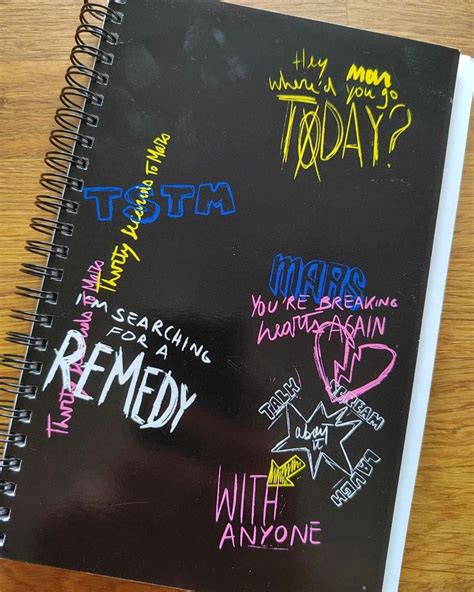 Hey man
where'd you go
TODAY?
Thirty Seconds To Mars
TSTM
Thirty Seconds To Mars
MARS
YOU'RE BREAKING
hearts AGAIN
I'M SEARCHING
FOR A
REMEDY
TALK
SCREAM
about
it
LAUGH
WITH
ANYONE